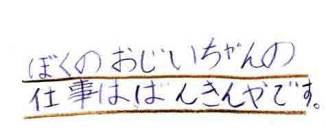 ぼくのおじいちゃんの
仕事はばんきんやです。